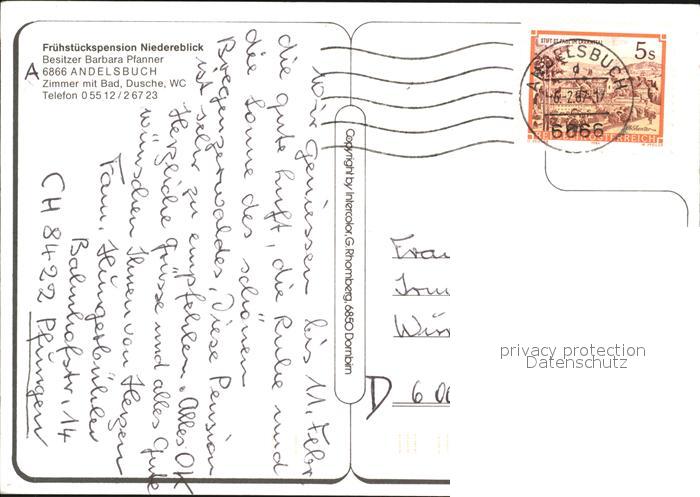 Frühstückspension Niedereblick
Besitzer Barbara Pfanner
A 6866 ANDELSBUCH
Zimmer mit Bad, Dusche, WC
Telefon 0 55 12 / 2 67 23
Wir geniessen bis 11. Febr.
die gute Luft, die Ruhe und
die Sonne des schönen
Bregenzerwaldes. Diese Pension
ist sehr zu empfehlen. Alles OK
Herzliche Grüsse und alles Gute
wünschen Ihnen von Herzen
Fam.
Bahnhofstr. 14
CH 8422 Pfungen
Copyright by Intercolor, G. Rhomberg, 6850 Dornbirn
STIFT ST. PAUL IM LAVANTTAL
5 S
REPUBLIK ÖSTERREICH
ANDELSBUCH
6866
Frau
D 6
privacy protection
Datenschutz